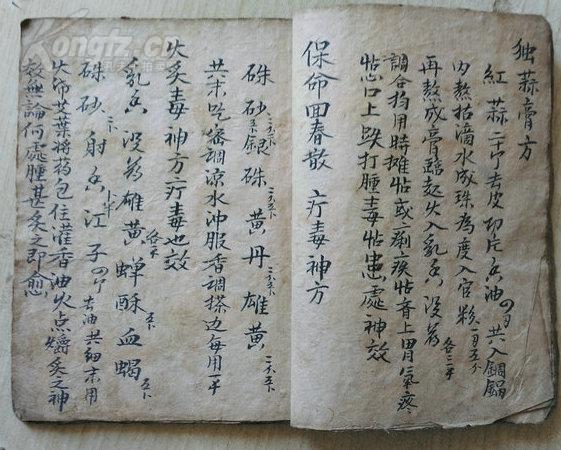 独蒜膏方
紅蒜二十个去皮切片香油四两共入銅鍋
内熬枯滴水成珠為度入官粉一两五分
再熬成膏臨起火入乳香没药各二
調合拘用時攤帖或痢疾帖脐上胃氣疼
帖心口上跌打腫毒帖患處神效
保命回春散 疔毒神方
硃砂 銀硃 黄丹 雄黄
共末吃蜜調凉水沖服香調搽边每用一
火炙毒神方疔毒也效
乳香没药雄黄蟬酥血蝎
硃砂射香江子四个去油共細末用
大市艾葉將药包住灌香油火点爝炙之神
效無論何處腫甚炙之即愈
Kongfz.com